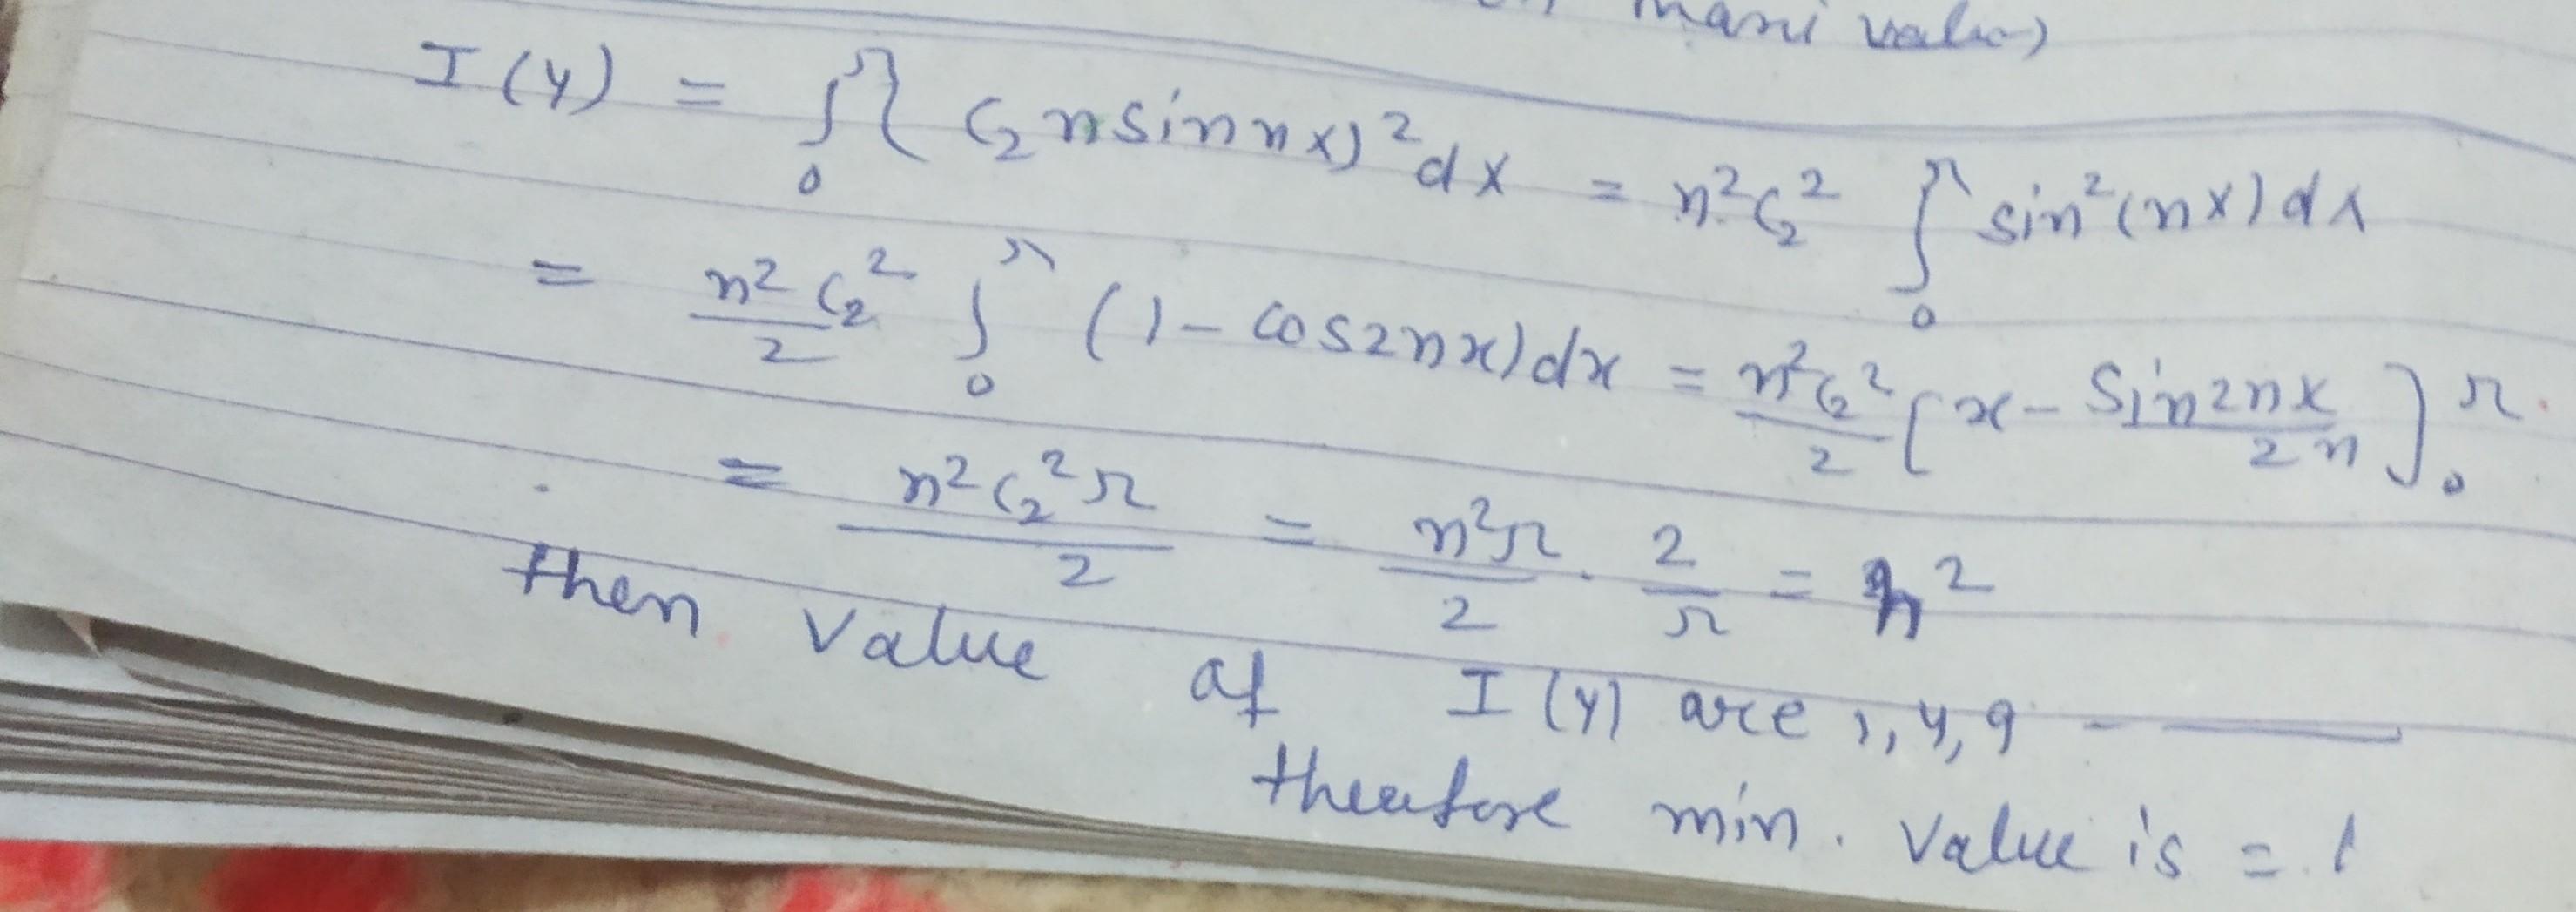 maxi value)
I(y) = ∫₀^π { C₂ n sin n x)² dx = n² C₂² ∫₀^π sin²(nx) dx
= n² C₂²/2 ∫₀^π (1 - cos2nx) dx = n² C₂²/2 [x - Sin2nx/2n]₀^π
= n² C₂² π/2 = n² π/2 · 2/π = n²
then Value of I(y) are 1, 4, 9 - —
therefore min. Value is = 1